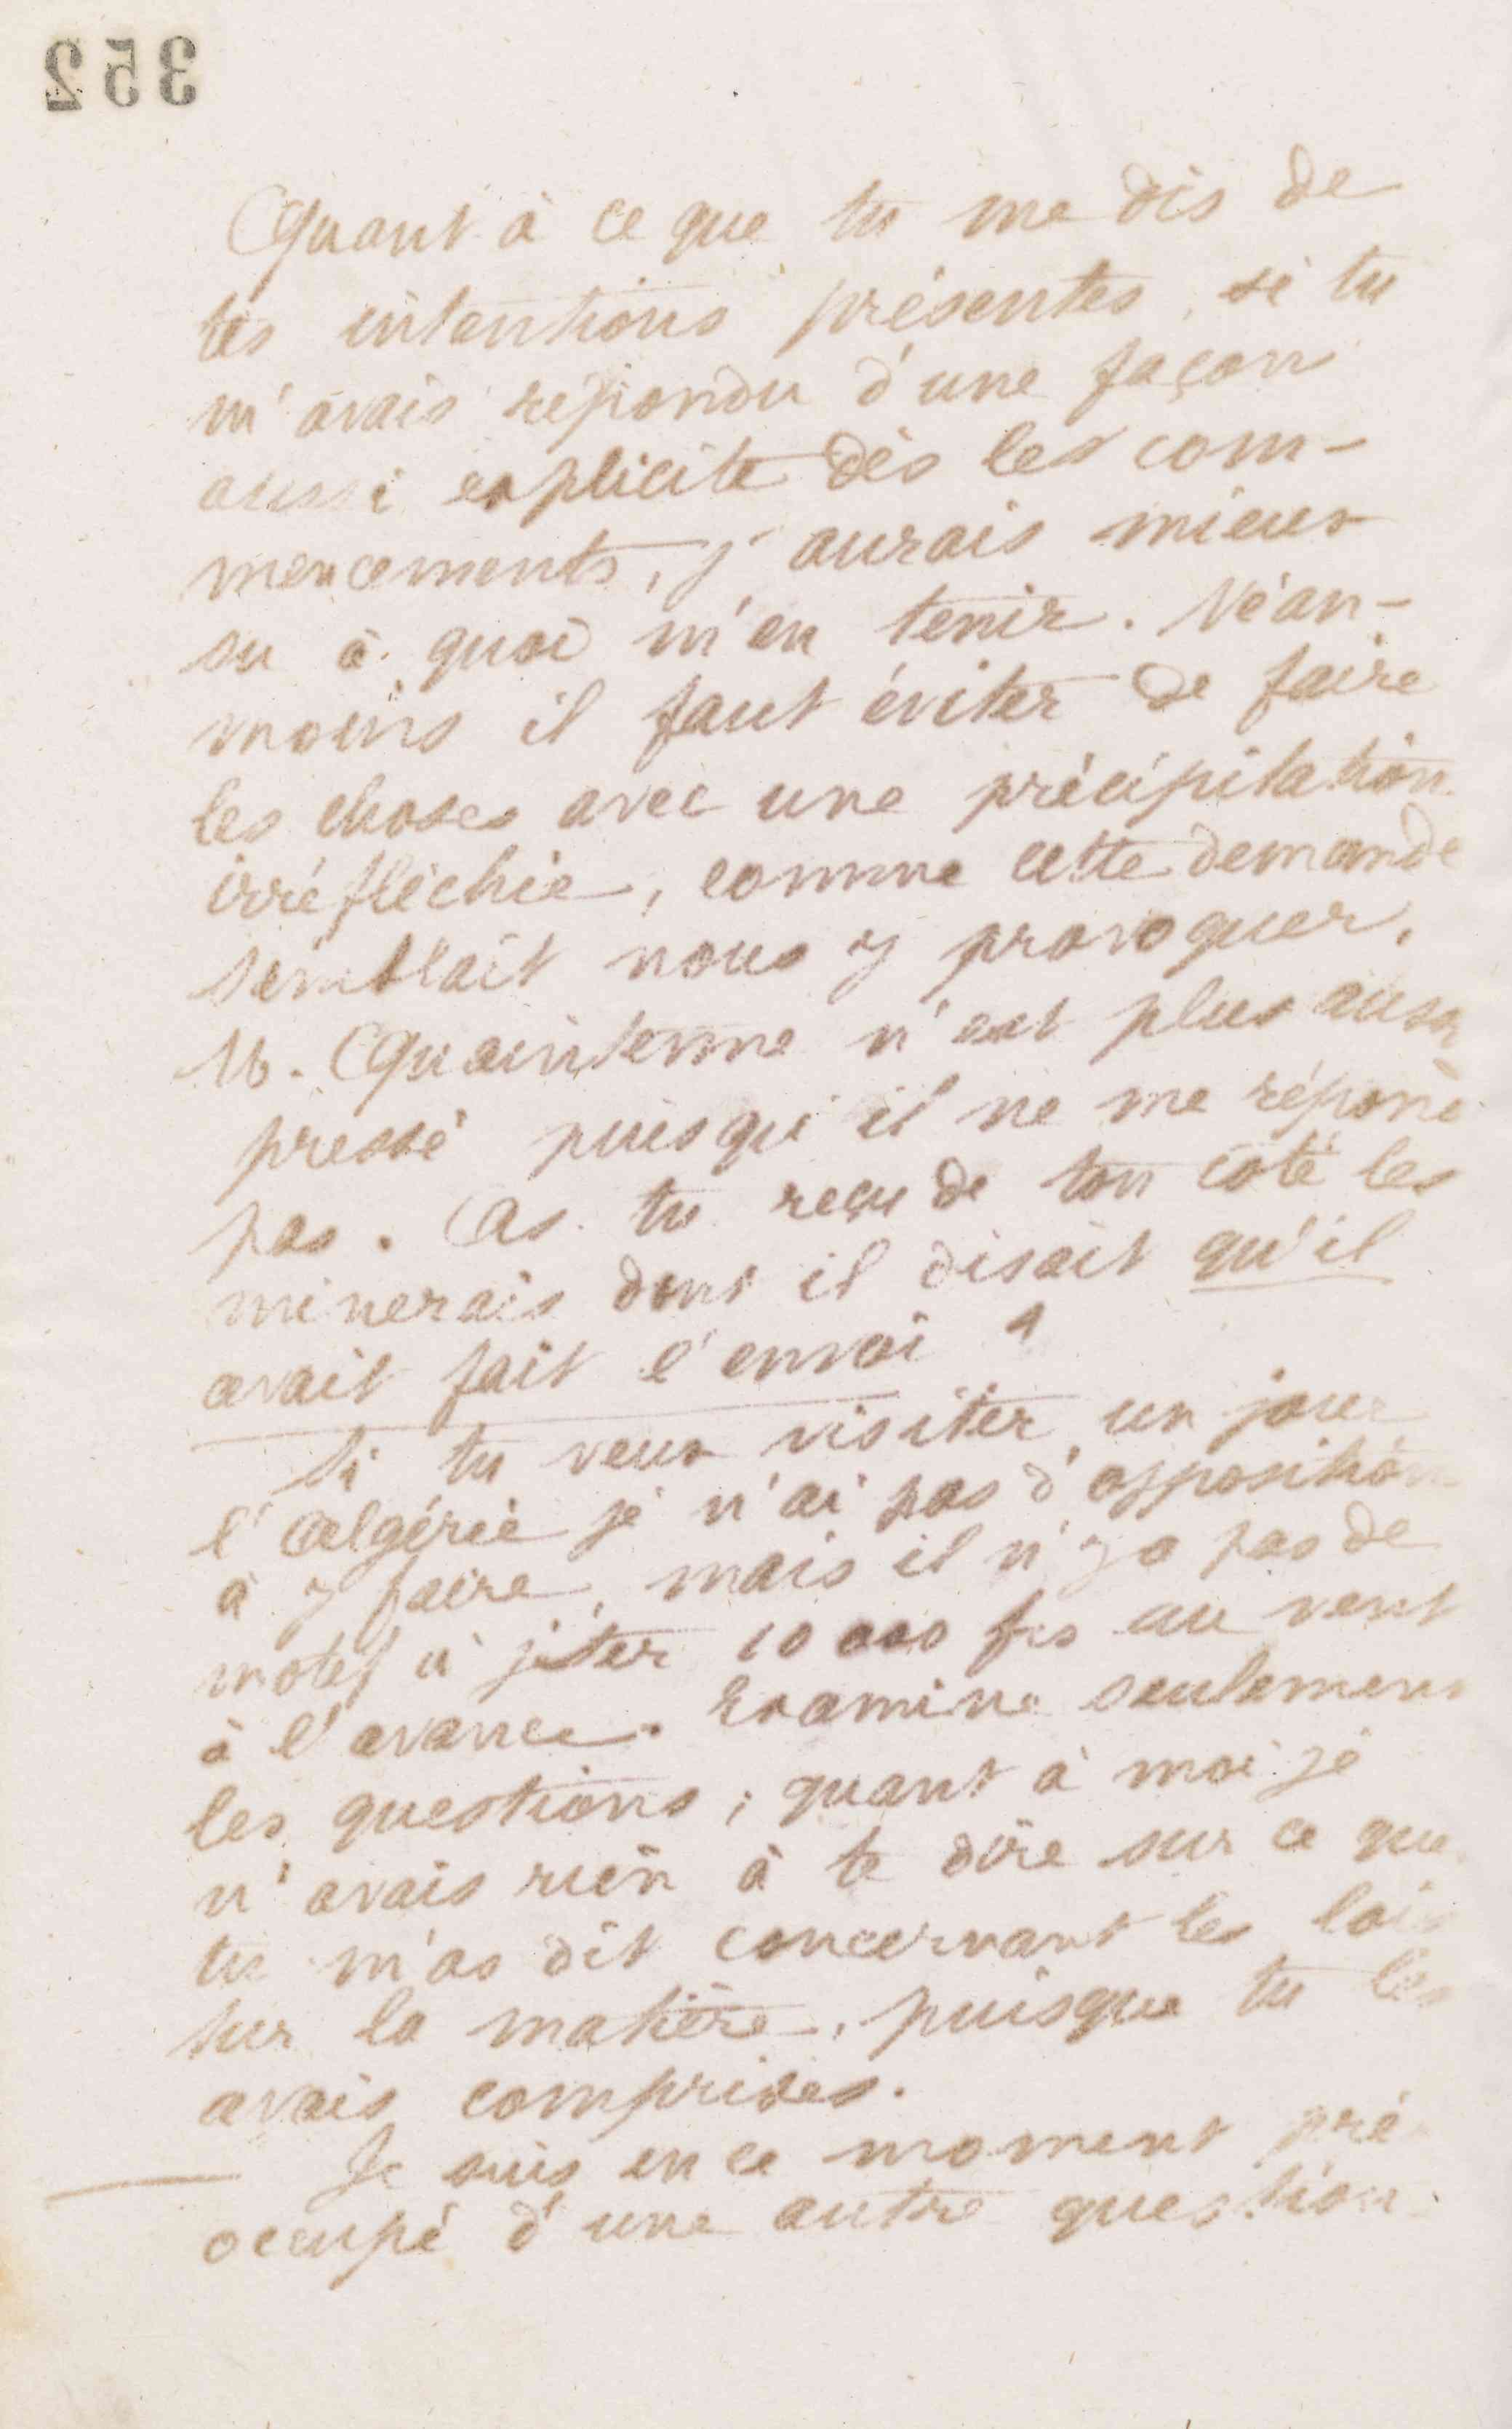 352
Quant à ce que tu me dis de
tes intentions présentes, si tu
m'avais répondu d'une façon
aussi explicite dès les com-
mencements, j'aurais mieux
su à quoi m'en tenir. Néan-
moins il faut éviter de faire
les choses avec une précipitation
irréfléchie, comme cette demande
semblait nous y provoquer.
M. Quaintenne n'est plus aussi
pressé puisqu'il ne me répond
pas. As tu reçu de ton côté les
minerais dont il disait qu'il
avait fait l'envoi ?
Si tu veux visiter un jour
l'Algérie je n'ai pas d'opposition
à y faire, mais il n'y a pas de
motif à jeter 10 000 frs au vent
à l'avance. Examine seulement
les questions ; quant à moi je
n'avais rien à te dire sur ce que
tu m'as dit concernant les lois
sur la matière, puisque tu les
avais comprises.
Je suis en ce moment pré
occupé d'une autre question